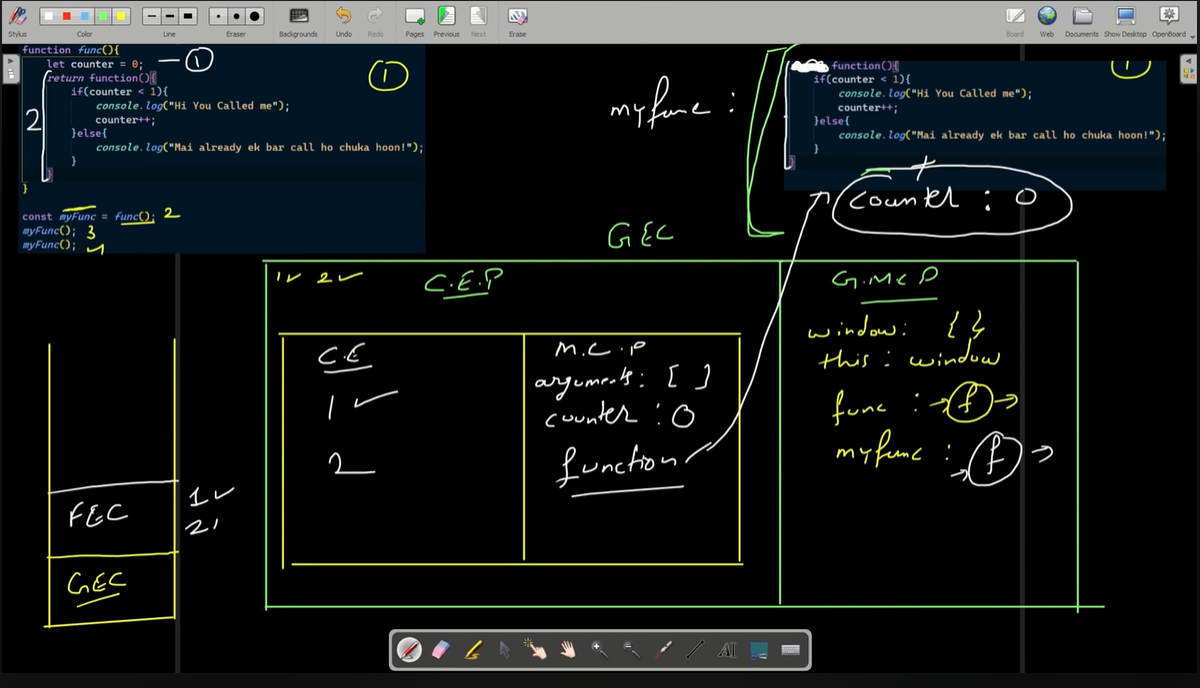 Stylus
Color
Line
Eraser
Backgrounds
Undo
Redo
Pages
Previous
Next
Erase
Board
Web
Documents
Show Desktop
OpenBoard
function func(){
let counter = 0; — 1
return function(){
if(counter < 1){
console.log("Hi You Called me");
counter++;
}else{
console.log("Mai already ek bar call ho chuka hoon!");
}
}
}
1
2
const myFunc = func(); 2
myFunc(); 3
myFunc(); 4
myfunc :
function(){
if(counter < 1){
console.log("Hi You Called me");
counter++;
}else{
console.log("Mai already ek bar call ho chuka hoon!");
}
}
1
+
counter : 0
GEC
1✓ 2✓
C.E.P
G.M.C.P
C.E
1 ✓
2
M.C.P
arguments: [ ]
counter : 0
function
window: { }
this : window
func : → f →
myfunc : → f →
FEC
1✓
2
GEC